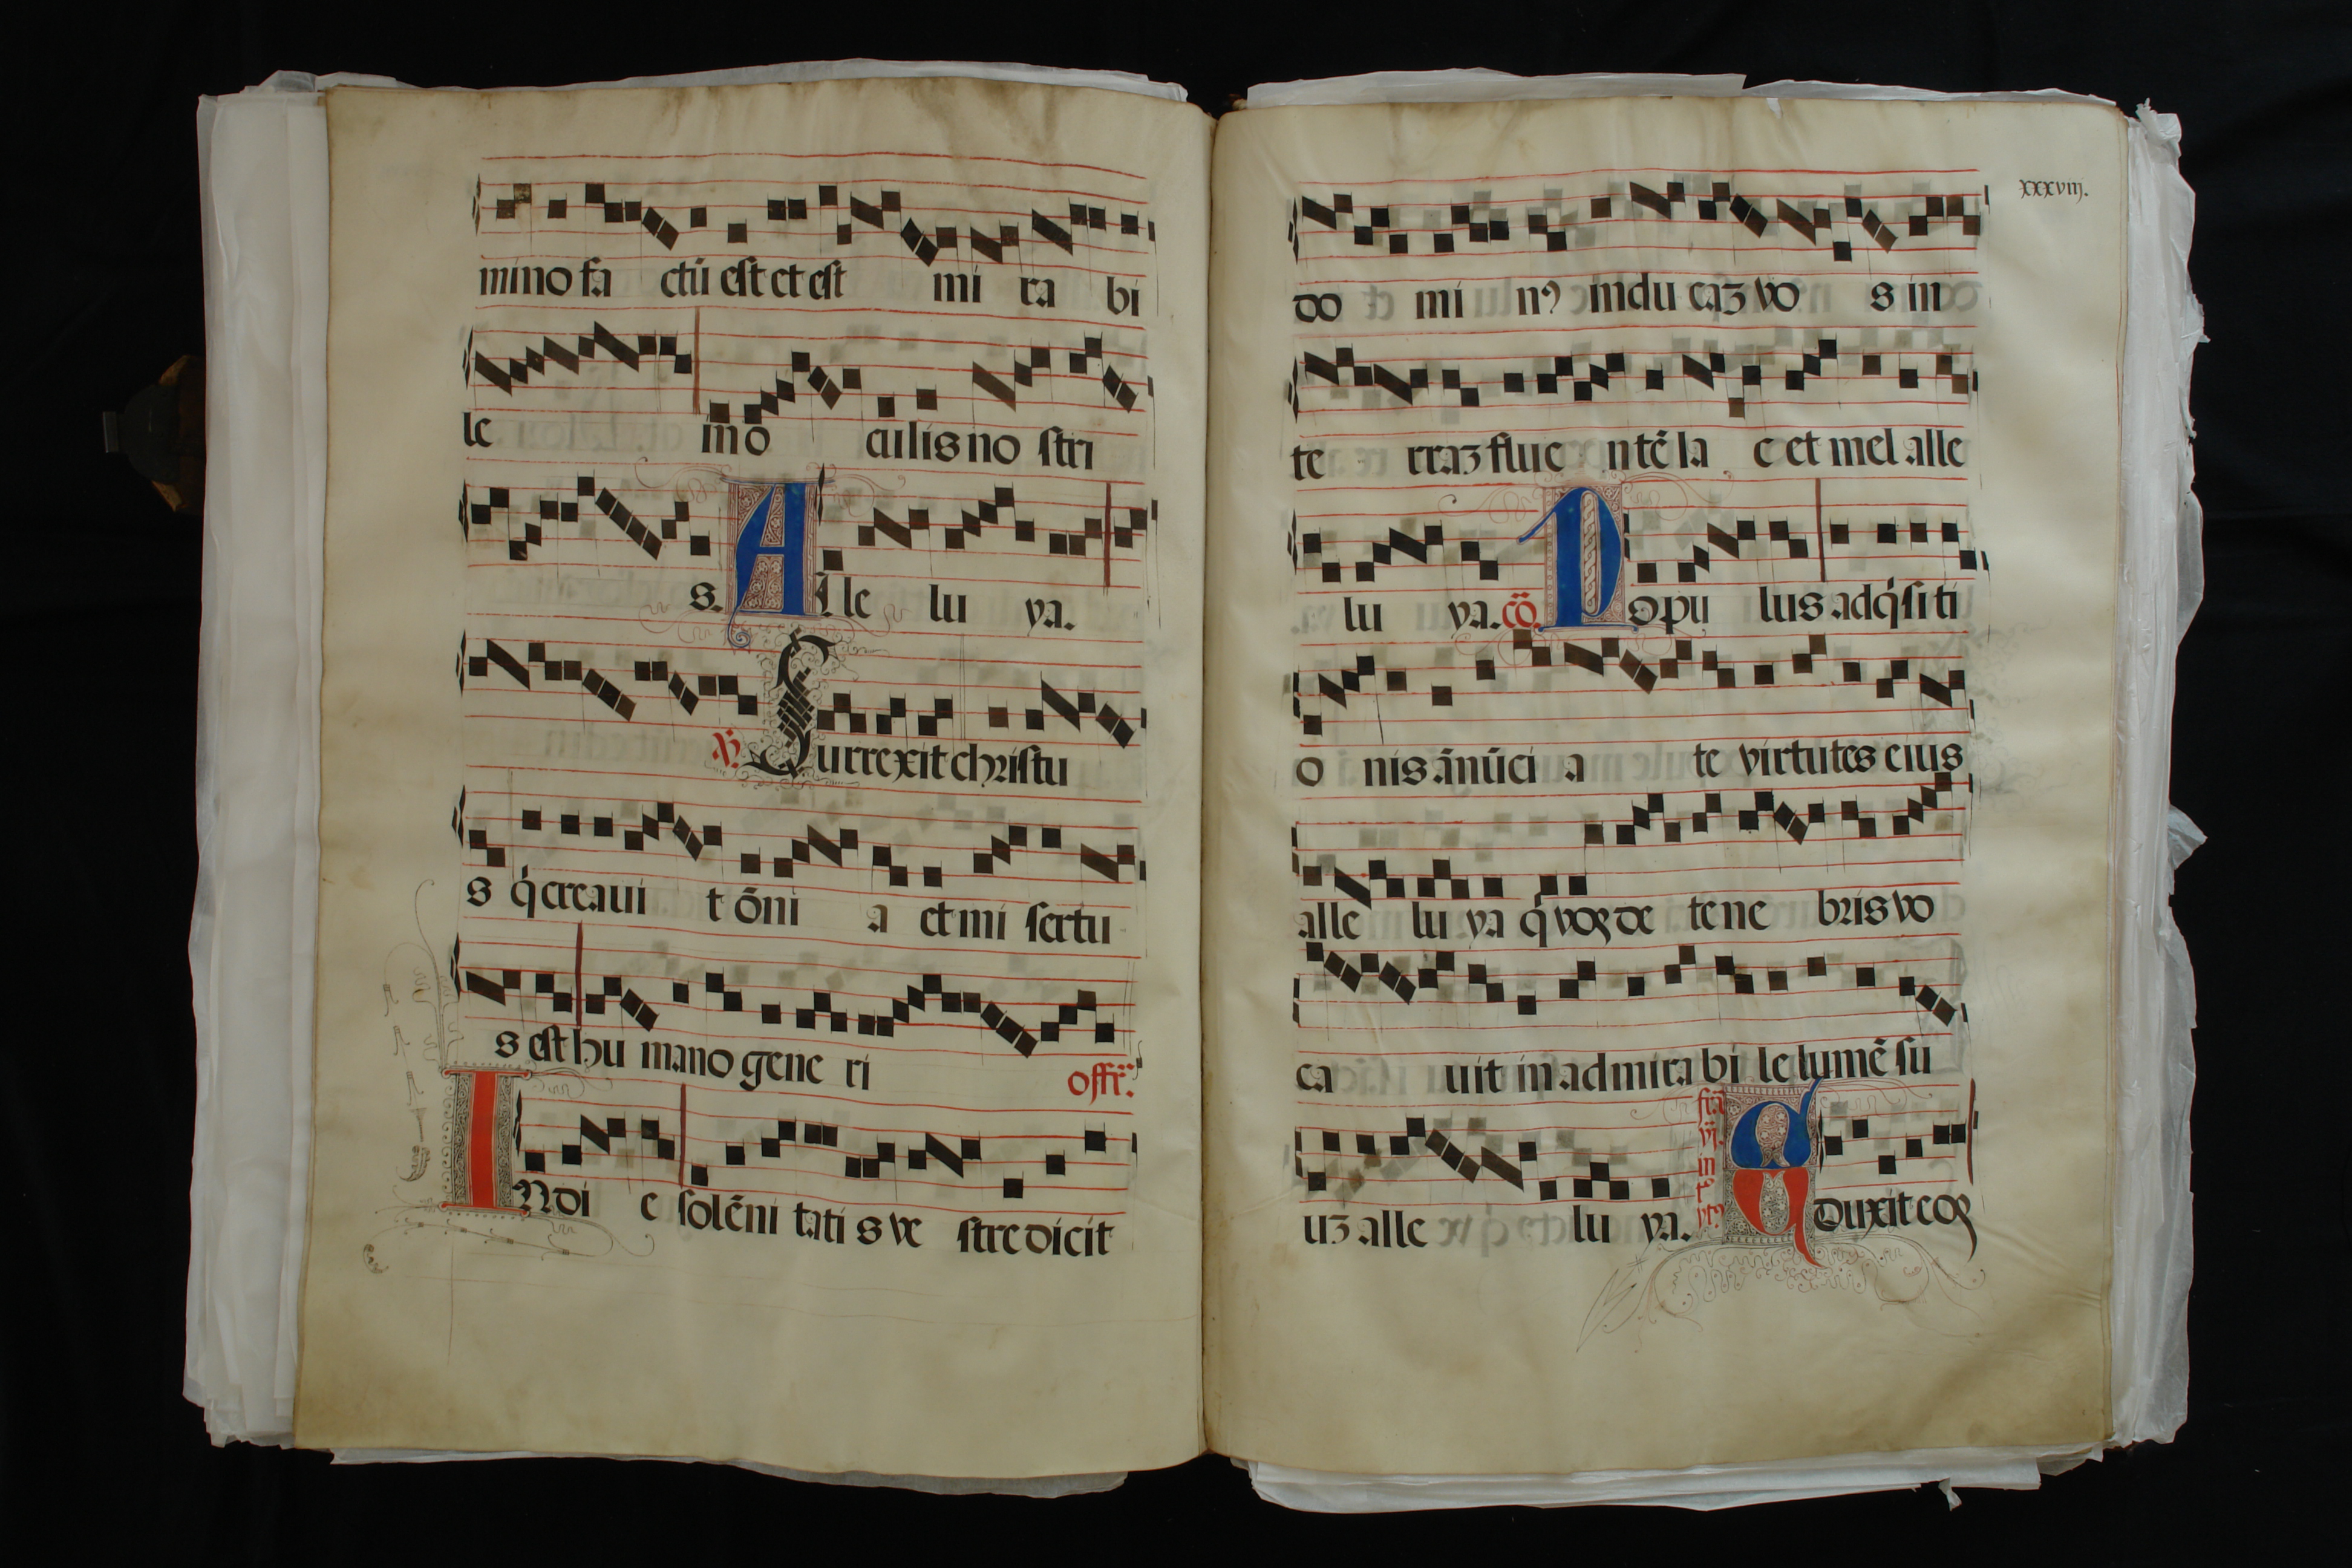 mino fa ctū est et est mi ra bi
le in o culis no stri
s. Alle lu ya.
℣. Surrexit christu
s q̇ creaui t ōni a et mi sertu
s est hu mano gene ri offr̄.
In di e solēni tati s ve stre dicit
xxxviij.
do mi nꝰ indu caꝫ vo s in
te rraꝫ flue n tē la c et mel alle
lu ya. cō. Popu lus adq̇siti
o nis ānūci a te virtutes eius
alle lu ya q̇ voꝝ de tene bris vo
ca uit in admira bi le lumē su
uꝫ alle lu ya. fr̄a vj. in tꝰ ytꝰ Eduxit eoꝝ